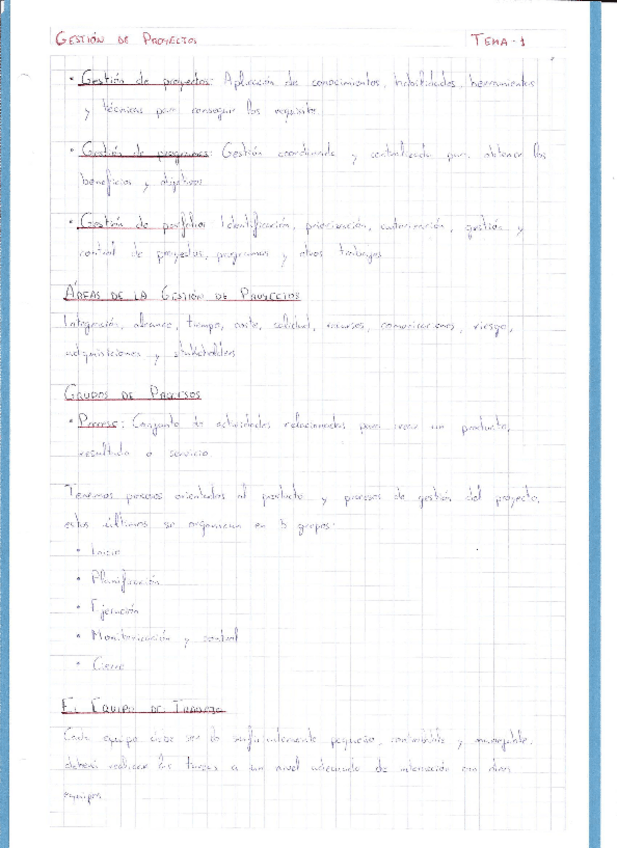 GESTIÓN DE PROYECTOS TEMA-1
• Gestión de proyectos: Aplicación de conocimientos, habilidades, herramientas
y técnicas para conseguir los requisitos
• Gestión de programas: Gestión coordinada y centralizada para obtener los
beneficios y objetivos
• Gestión de porfolios: Identificación, priorización, autorización, gestión y
control de proyectos, programas y otros trabajos
ÁREAS DE LA GESTIÓN DE PROYECTOS
Integración, alcance, tiempo, coste, calidad, recursos, comunicaciones, riesgo,
adquisiciones y stakeholders
GRUPOS DE PROCESOS
• Proceso: Conjunto de actividades relacionadas para crear un producto,
resultado o servicio
Tenemos procesos orientados al producto y procesos de gestión del proyecto,
estos últimos se organizan en 5 grupos:
• Inicio
• Planificación
• Ejecución
• Monitorización y control
• Cierre
EL EQUIPO DE TRABAJO
Cada equipo debe ser lo suficientemente pequeño, controlable y manejable,
deberá realizar las tareas a un nivel adecuado de interacción con otros
equipos